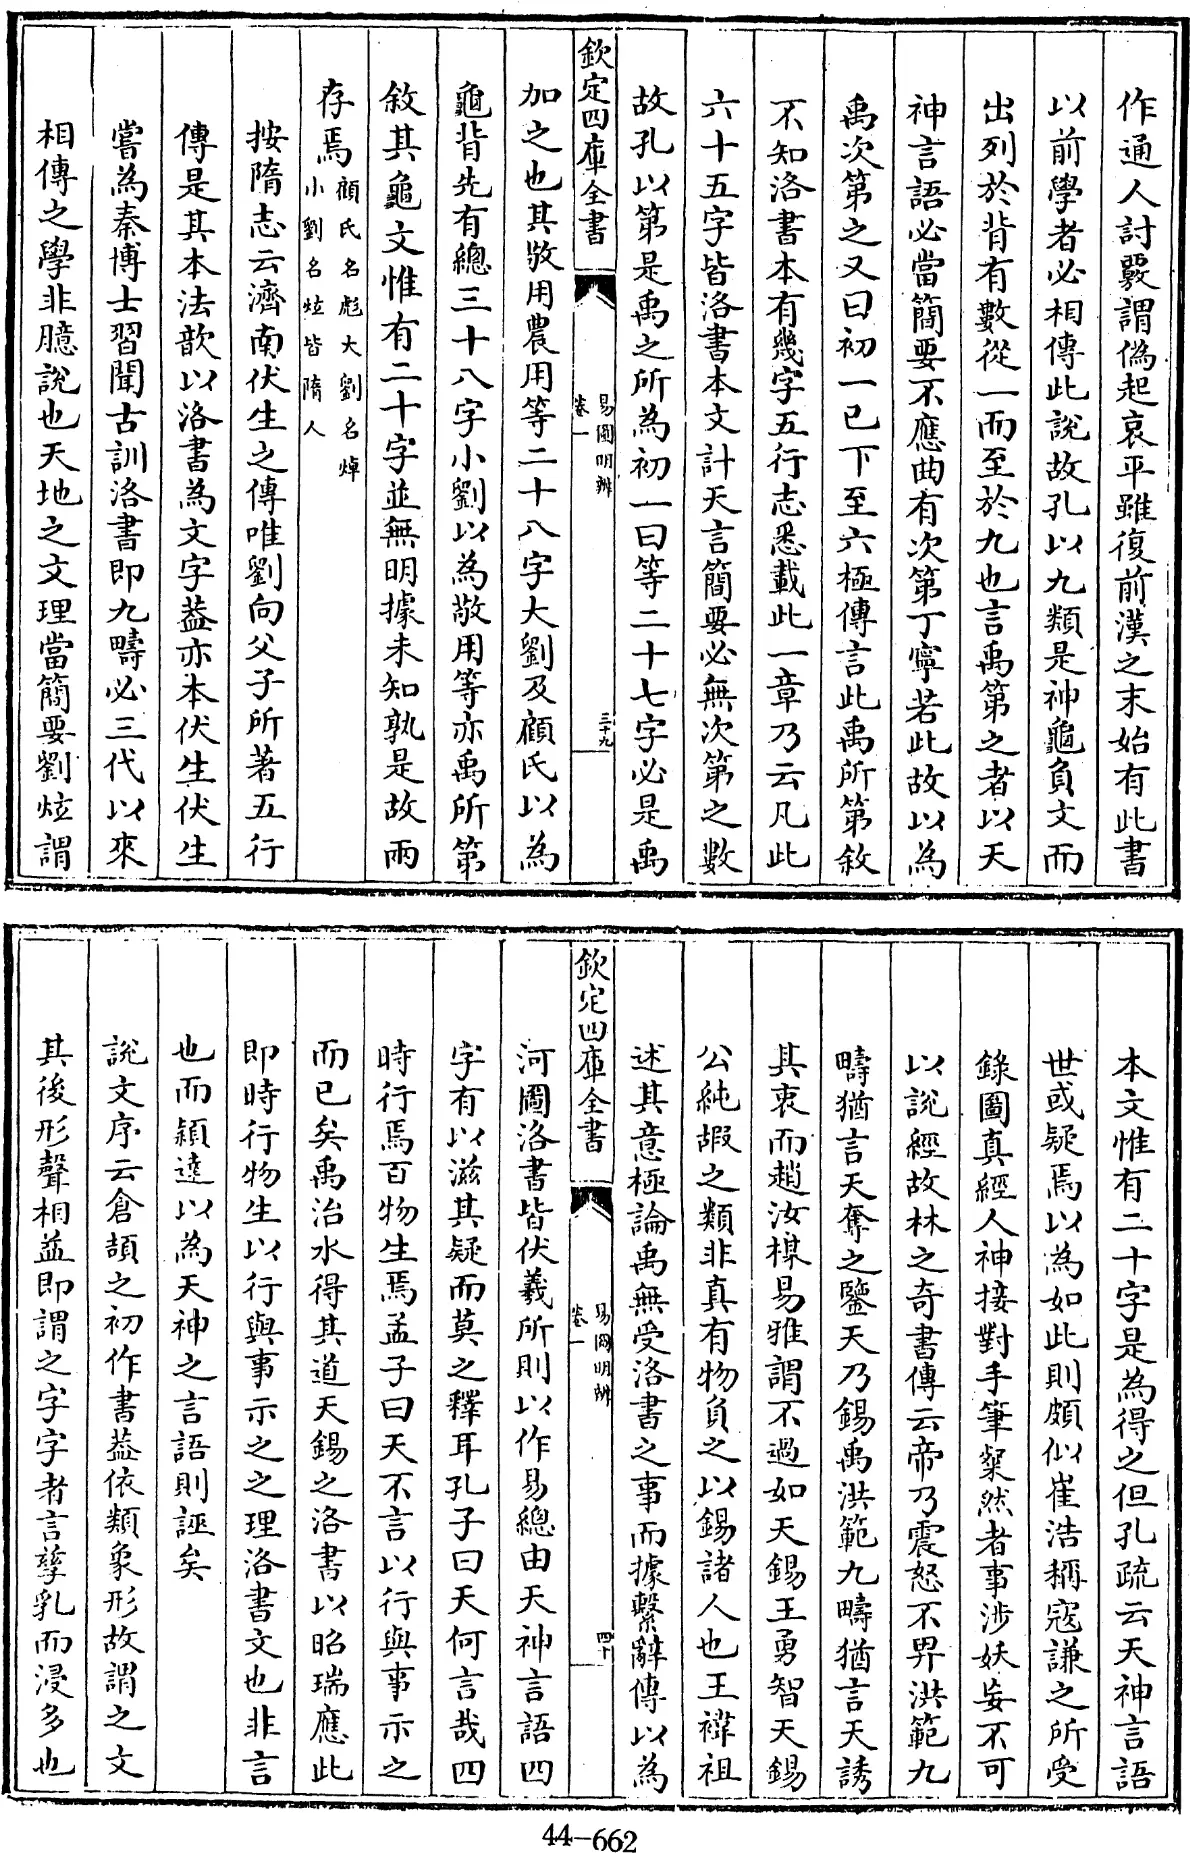 作通人討覈謂偽起哀平雖復前漢之末始有此書
以前學者必相傳此說故孔以九類是神龜負文而
出列於背有數從一而至於九也言禹第之者以天
神言語必當簡要不應曲有次第丁寧若此故以為
禹次第之又曰初一已下至六極傳言此禹所第敘
不知洛書本有幾字五行志悉載此一章乃云凡此
六十五字皆洛書本文計天言簡要必無次第之數
故孔以第是禹之所為初一曰等二十七字必是禹
欽定四庫全書
易圖明辨
卷一
三十九
加之也其敬用農用等二十八字大劉及顧氏以為
龜背先有總三十八字小劉以為敬用等亦禹所第
敘其龜文惟有二十字並無明據未知孰是故兩
存焉顧氏名彪大劉名焯
小劉名炫皆隋人
按隋志云濟南伏生之傳唯劉向父子所著五行
傳是其本法歆以洛書為文字蓋亦本伏生伏生
嘗為秦博士習聞古訓洛書即九疇必三代以來
相傳之學非臆說也天地之文理當簡要劉炫謂
本文惟有二十字是為得之但孔疏云天神言語
世或疑焉以為如此則頗似崔浩稱寇謙之所受
錄圖真經人神接對手筆粲然者事涉妖妄不可
以說經故林之奇書傳云帝乃震怒不畀洪範九
疇猶言天奪之鑒天乃錫禹洪範九疇猶言天誘
其衷而趙汝楳易雅謂不過如天錫王勇智天錫
公純嘏之類非真有物負之以錫諸人也王禕祖
述其意極論禹無受洛書之事而據繫辭傳以為
欽定四庫全書
易圖明辨
卷一
四十
河圖洛書皆伏羲所則以作易總由天神言語四
字有以滋其疑而莫之釋耳孔子曰天何言哉四
時行焉百物生焉孟子曰天不言以行與事示之
而已矣禹治水得其道天錫之洛書以昭瑞應此
即時行物生以行與事示之之理洛書文也非言
也而穎達以為天神之言語則誣矣
說文序云倉頡之初作書蓋依類象形故謂之文
其後形聲相益即謂之字字者言孳乳而浸多也
44-662